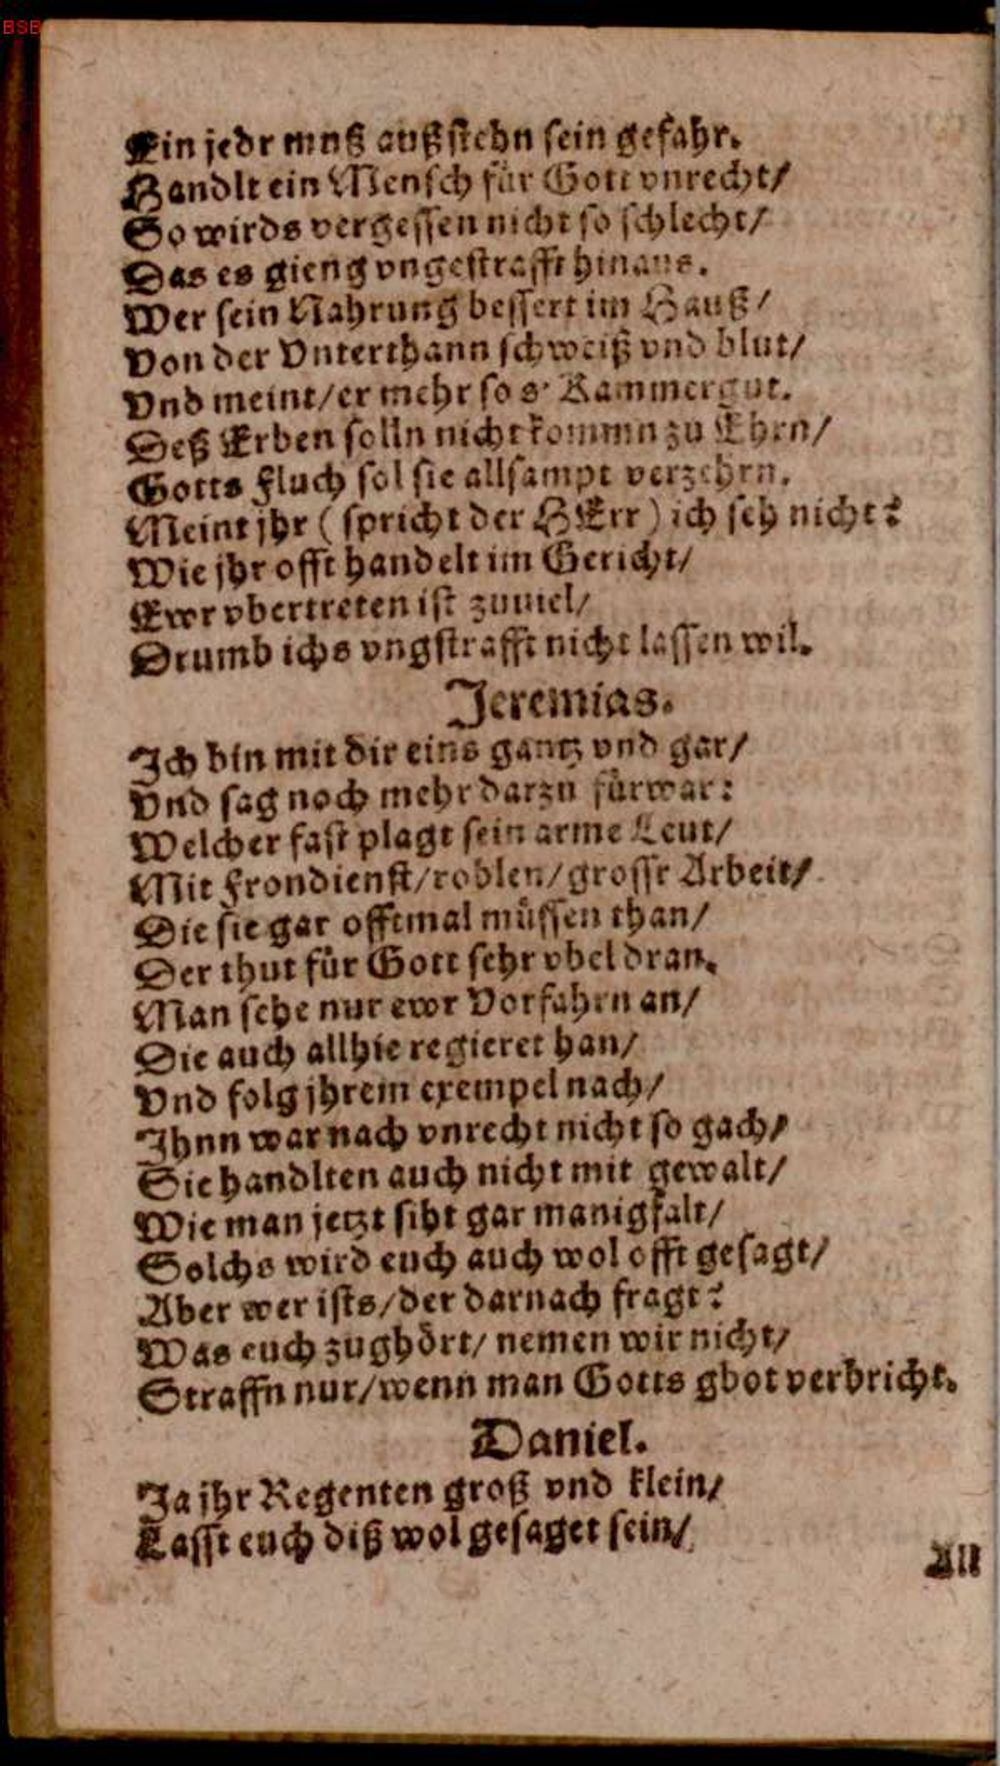 BSB
Ein jedr muß außstehn sein gefahr.
Handlt ein Mensch für Gott vnrecht/
So wirds vergessen nicht so schlecht/
Das es gieng vngestrafft hinaus.
Wer sein Nahrung bessert im Hauß/
Von der Vnterthann schweiß vnd blut/
Vnd meint/er mehr so s' Kammergut.
Deß Erben solln nicht kommn zu Ehrn/
Gotts Fluch sol sie allsampt verzehrn.
Meint jhr (spricht der HErr) ich seh nicht?
Wie jhr offt handelt im Gericht/
Ewr vbertreten ist zuuiel/
Drumb ichs vngstrafft nicht lassen wil.
Jeremias.
Ich bin mit dir eins gantz vnd gar/
Vnd sag noch mehr darzu fürwar:
Welcher fast plagt sein arme Leut/
Mit Frondienst/roblen/grossr Arbeit/
Die sie gar offtmal müssen than/
Der thut für Gott sehr vbel dran.
Man sehe nur ewr Vorfahrn an/
Die auch allhie regieret han/
Vnd folg jhrem exempel nach/
Ihnn war nach vnrecht nicht so gach/
Sie handlten auch nicht mit gewalt/
Wie man jetzt siht gar manigfalt/
Solchs wird euch auch wol offt gesagt/
Aber wer ists/der darnach fragt?
Was euch zughört/ nemen wir nicht/
Straffn nur/wenn man Gotts gbot verbricht.
Daniel.
Ja jhr Regenten groß vnd klein/
Lasst euch diß wol gesaget sein/
All